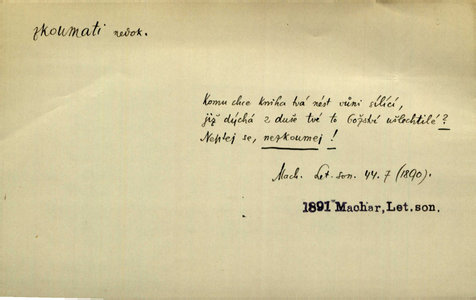 zkoumati nedok.
Komu chce kniha tvá nést vůni sílící,
již dýchá z duše tvé to božství ušlechtilé?
Neptej se, nezkoumej!
Mach. Let. son. 44. 7 (1890).
1891 Machar, Let. son.